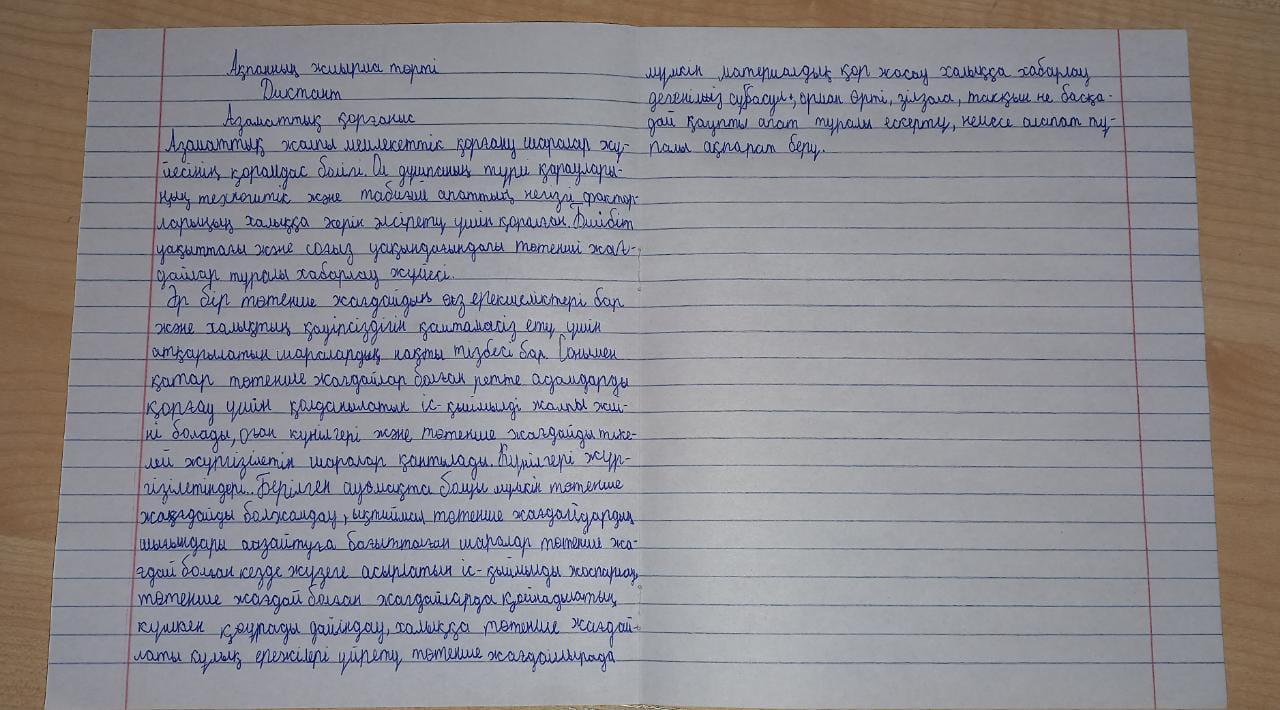 Ақпанның жиырма төрті
Диктант
Азаматтық қорғаныс
Азаматтық жалпы мемлекеттік қорғану шаралар жү-
йесінің құрамдас бөлігі. Ол душпаның түрі қарулары-
ның техногитік және табиғи апаттың негізгі фактор-
ларының халыққа хәрін әлсірету үшін құралған. Бейбіт
уақыттағы және соғыз уақындағындағы төтенше жағ-
дайлар туралы хабарлау жүйесі.
Әр бір төтенше жағдайдың өз ерекшеліктері бар
және халықтың қауіпсіздігін қамтамасіз ету үшін
атқарылатын шаралардың нақты тізбесі бар. Сонымен
қатар төтенше жағдайлар болған ретте адамдарды
қорғау үшін қолданылатын іс-қыймылді жалпы жи-
ні болады, оған күнілгері және төтенше жағдайды тіке-
лей жүргізілетін шаралар қамтылады. Күнілгері жүр-
гізілетіндері.. Берілген аумақта болуы мүмкін төтенше
жағдайды болжамдау, ықтиймал төтенше жағдайдардың
шығындары азайтуға бағытталған шаралар төтенше жа-
ғдай болған кезде жүзеге асырлатын іс-қыймылды жоспарлау,
төтенше жағдай болған жағдайларда қолнадылатың
күмкен құрады дайіндау, халыққа төтенше жағдай-
латы құлық ережілері үйрету төтенше жағдайлырада
мүмкін материалдық қор жасау халыққа хабарлау
дегеніміз субасул, орман өрті, зілзала, тасқын не басқа-
дай қауіпті апат туралы ескерту, немесе алапат ту-
ралы ақпарат беру.